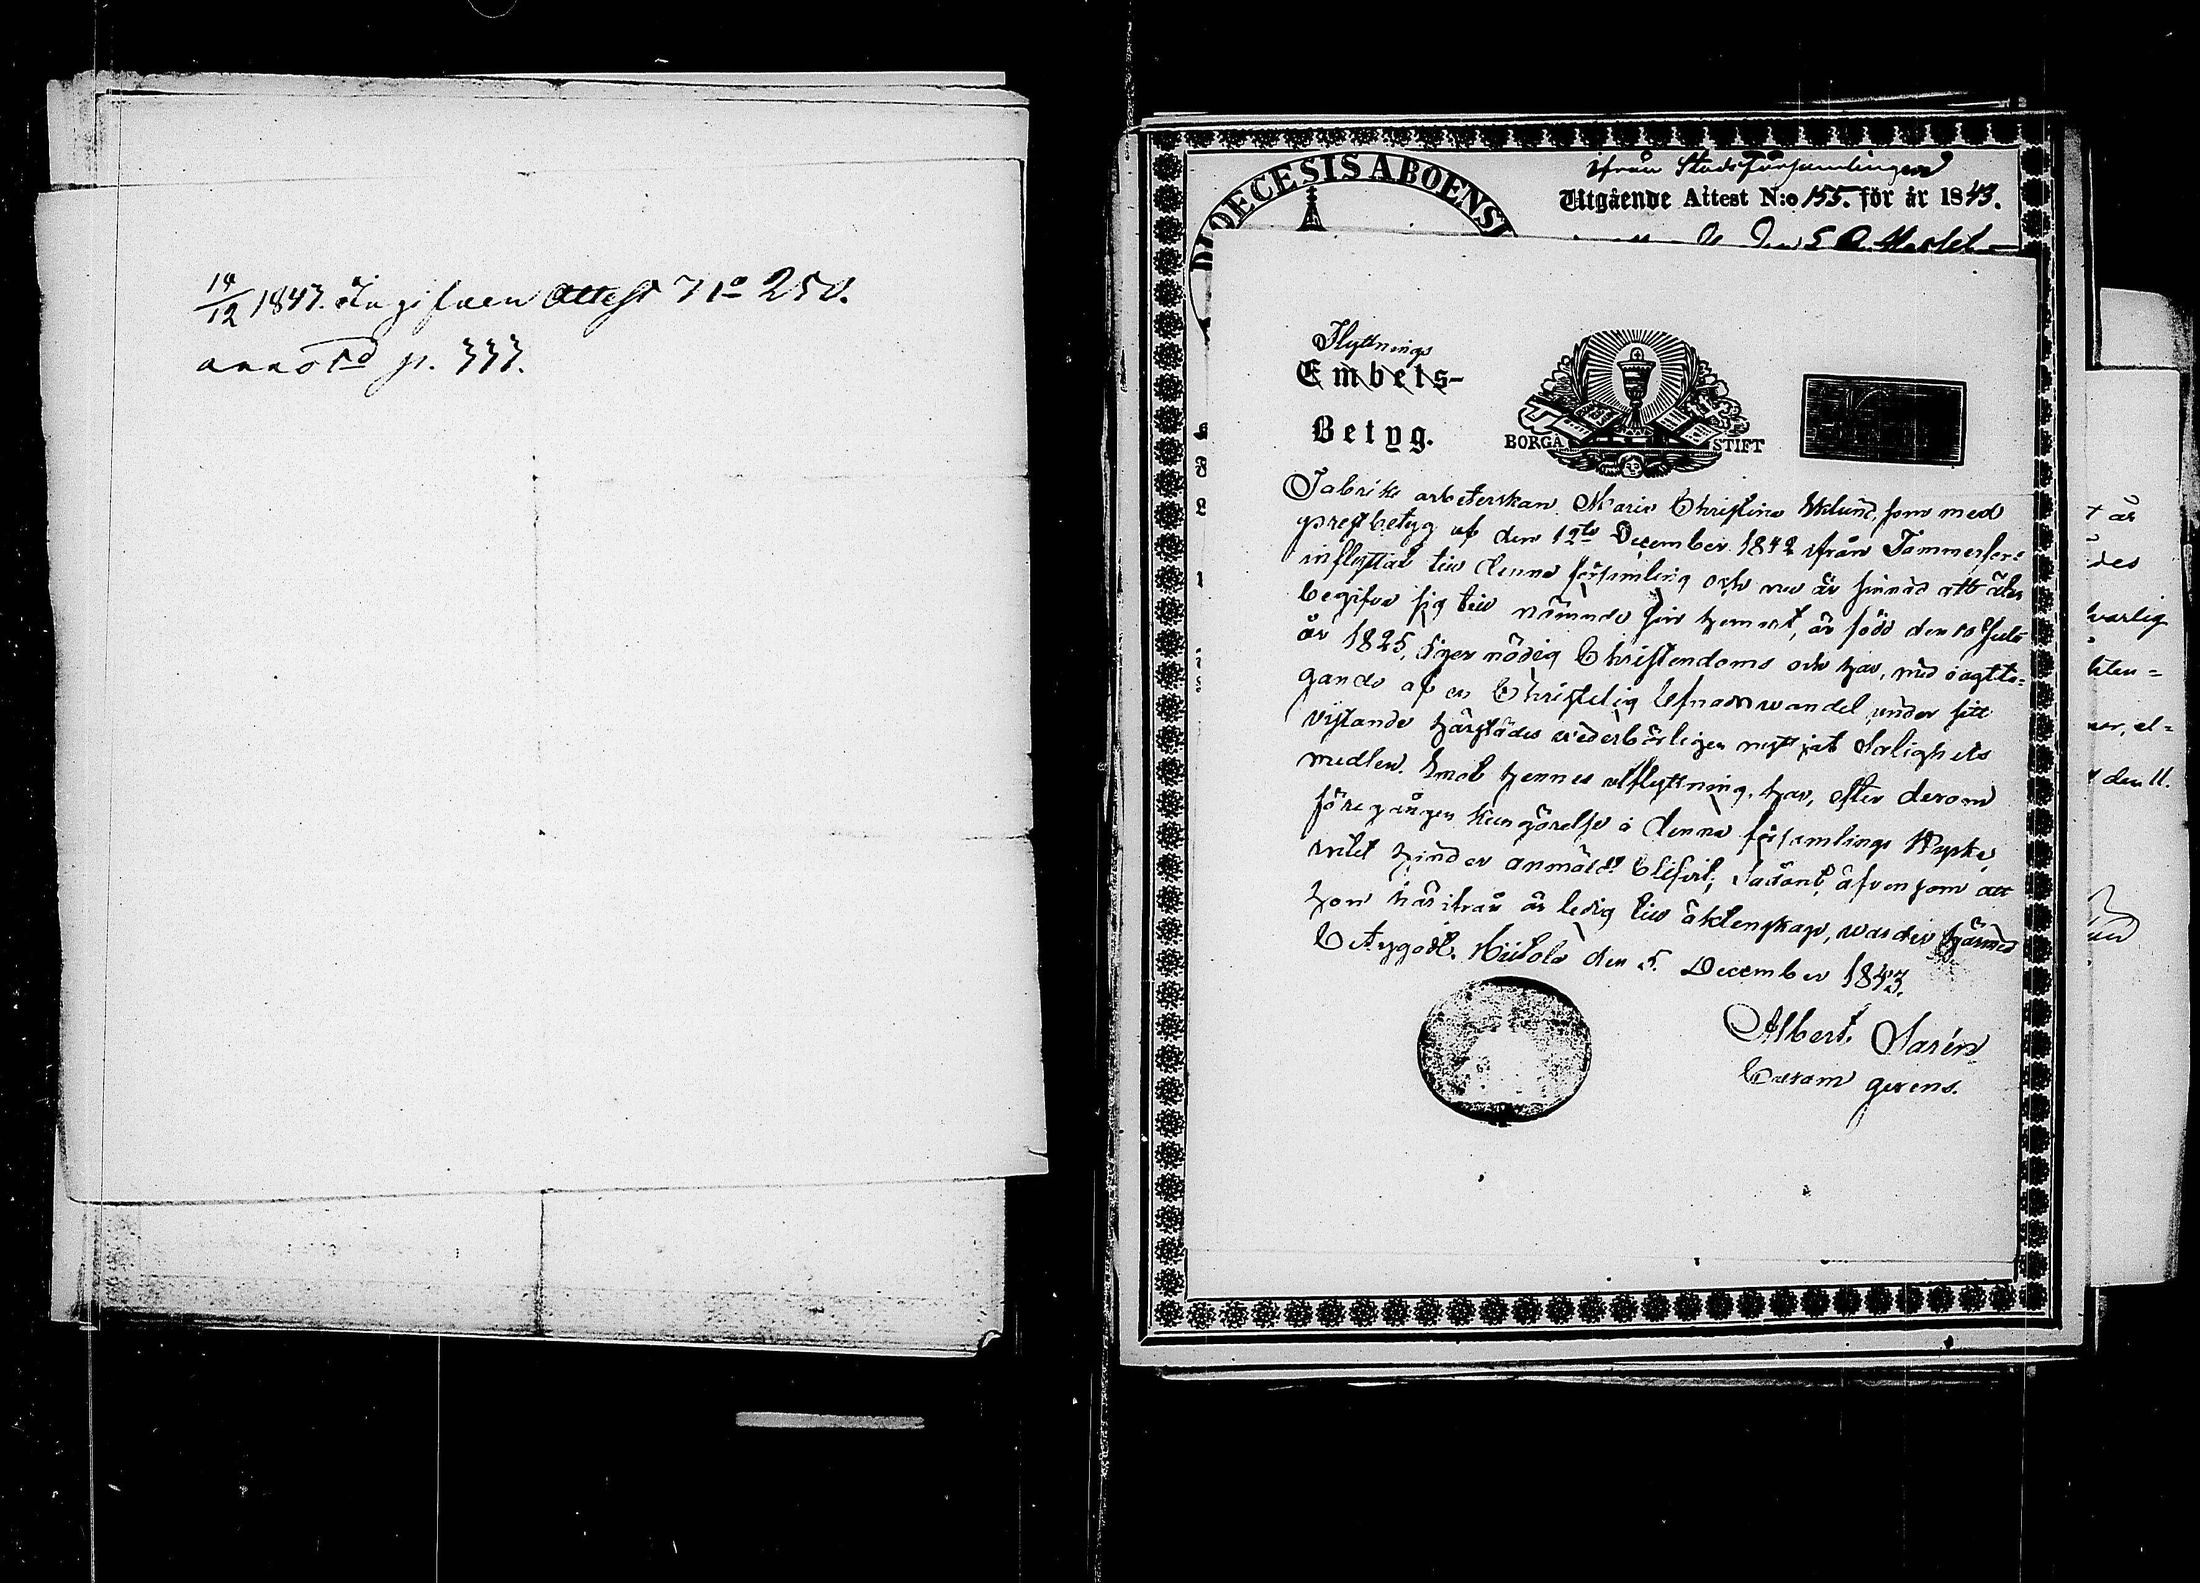 14/12 1843. Ingifven Attest No 250.
annoterd p. 333.
DIOECESIS ABOENSI
ifrån Stadsförsamlingen
Utgående Attest N:o 155. för år 1843.
Flyttnings
Embets-
Betyg.
BORGÅ STIFT
Fabriks arbeterskan Maria Christina Eklund, som med
prestbetyg af den 12te December 1842 ifrån Tammerfors
inflyttat till denna församling och nu är sinnad att åter
begifva sig till nämnde sin hemort, är född den 10 Juli
år 1825, äger nödig Christendoms och har, med iagtta-
gande af en Christelig lefnadswandel, under sitt
vistande härstädes vederbörligen nyttjat Salighets
medlen. Emot hennes utflyttning, har, efter derom
föregången kungörelse i denna församlings Kyrka,
intet hinder anmäldt blifvit; Sådant, äfvensom att
hon härifrån är ledig till äktenskap, warder härmed
betygadt. Hiitola den 5. December 1843.
Albert Sarén
Curam gerens.
t är
des
varlig
liten=
ner, el=
den 11.